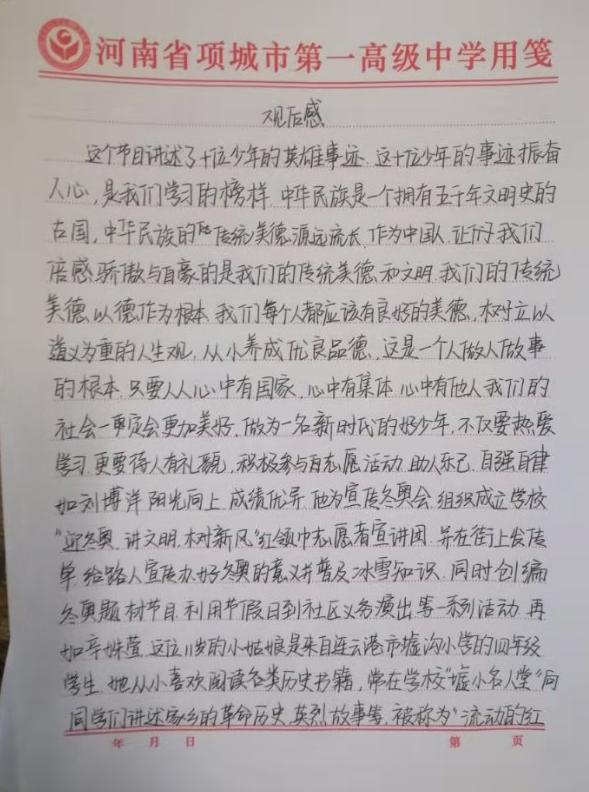 河南省项城市第一高级中学用笺
观后感
这个节目讲述了十位少年的英雄事迹.这十位少年的事迹振奋
人心,是我们学习的榜样.中华民族是一个拥有五千年文明史的
古国,中华民族的传统美德源远流长.作为中国人,让我们
倍感骄傲与自豪的是我们的传统美德和文明.我们的传统
美德以德作为根本.我们每个人都应该有良好的美德,树立以
道义为重的人生观,从小养成优良品德,这是一个人做人做事
的根本.只要人人心中有国家.心中有集体.心中有他人我们的
社会一定会更加美好.做为一名新时代的好少年,不仅要热爱
学习.更要待人有礼貌,积极参与志愿活动.助人乐己.自强自律
如刘博洋阳光向上.成绩优异.他为宣传冬奥会.组织成立学校
“迎冬奥.讲文明.树新风”红领巾志愿者宣讲团.并在街上发传
单.给路人宣传办好冬奥的意义并普及冰雪知识.同时创编
冬奥题材节目.利用节假日到社区义务演出等一系列活动.再
如辛姝萱.这位11岁的小姑娘是来自连云港市墟沟小学的四年级
学生.她从小喜欢阅读各类历史书籍,常在学校“墟小名人堂”向
同学们讲述家乡的革命历史.英烈故事等,被称为“流动的红
年 月 日 第 页